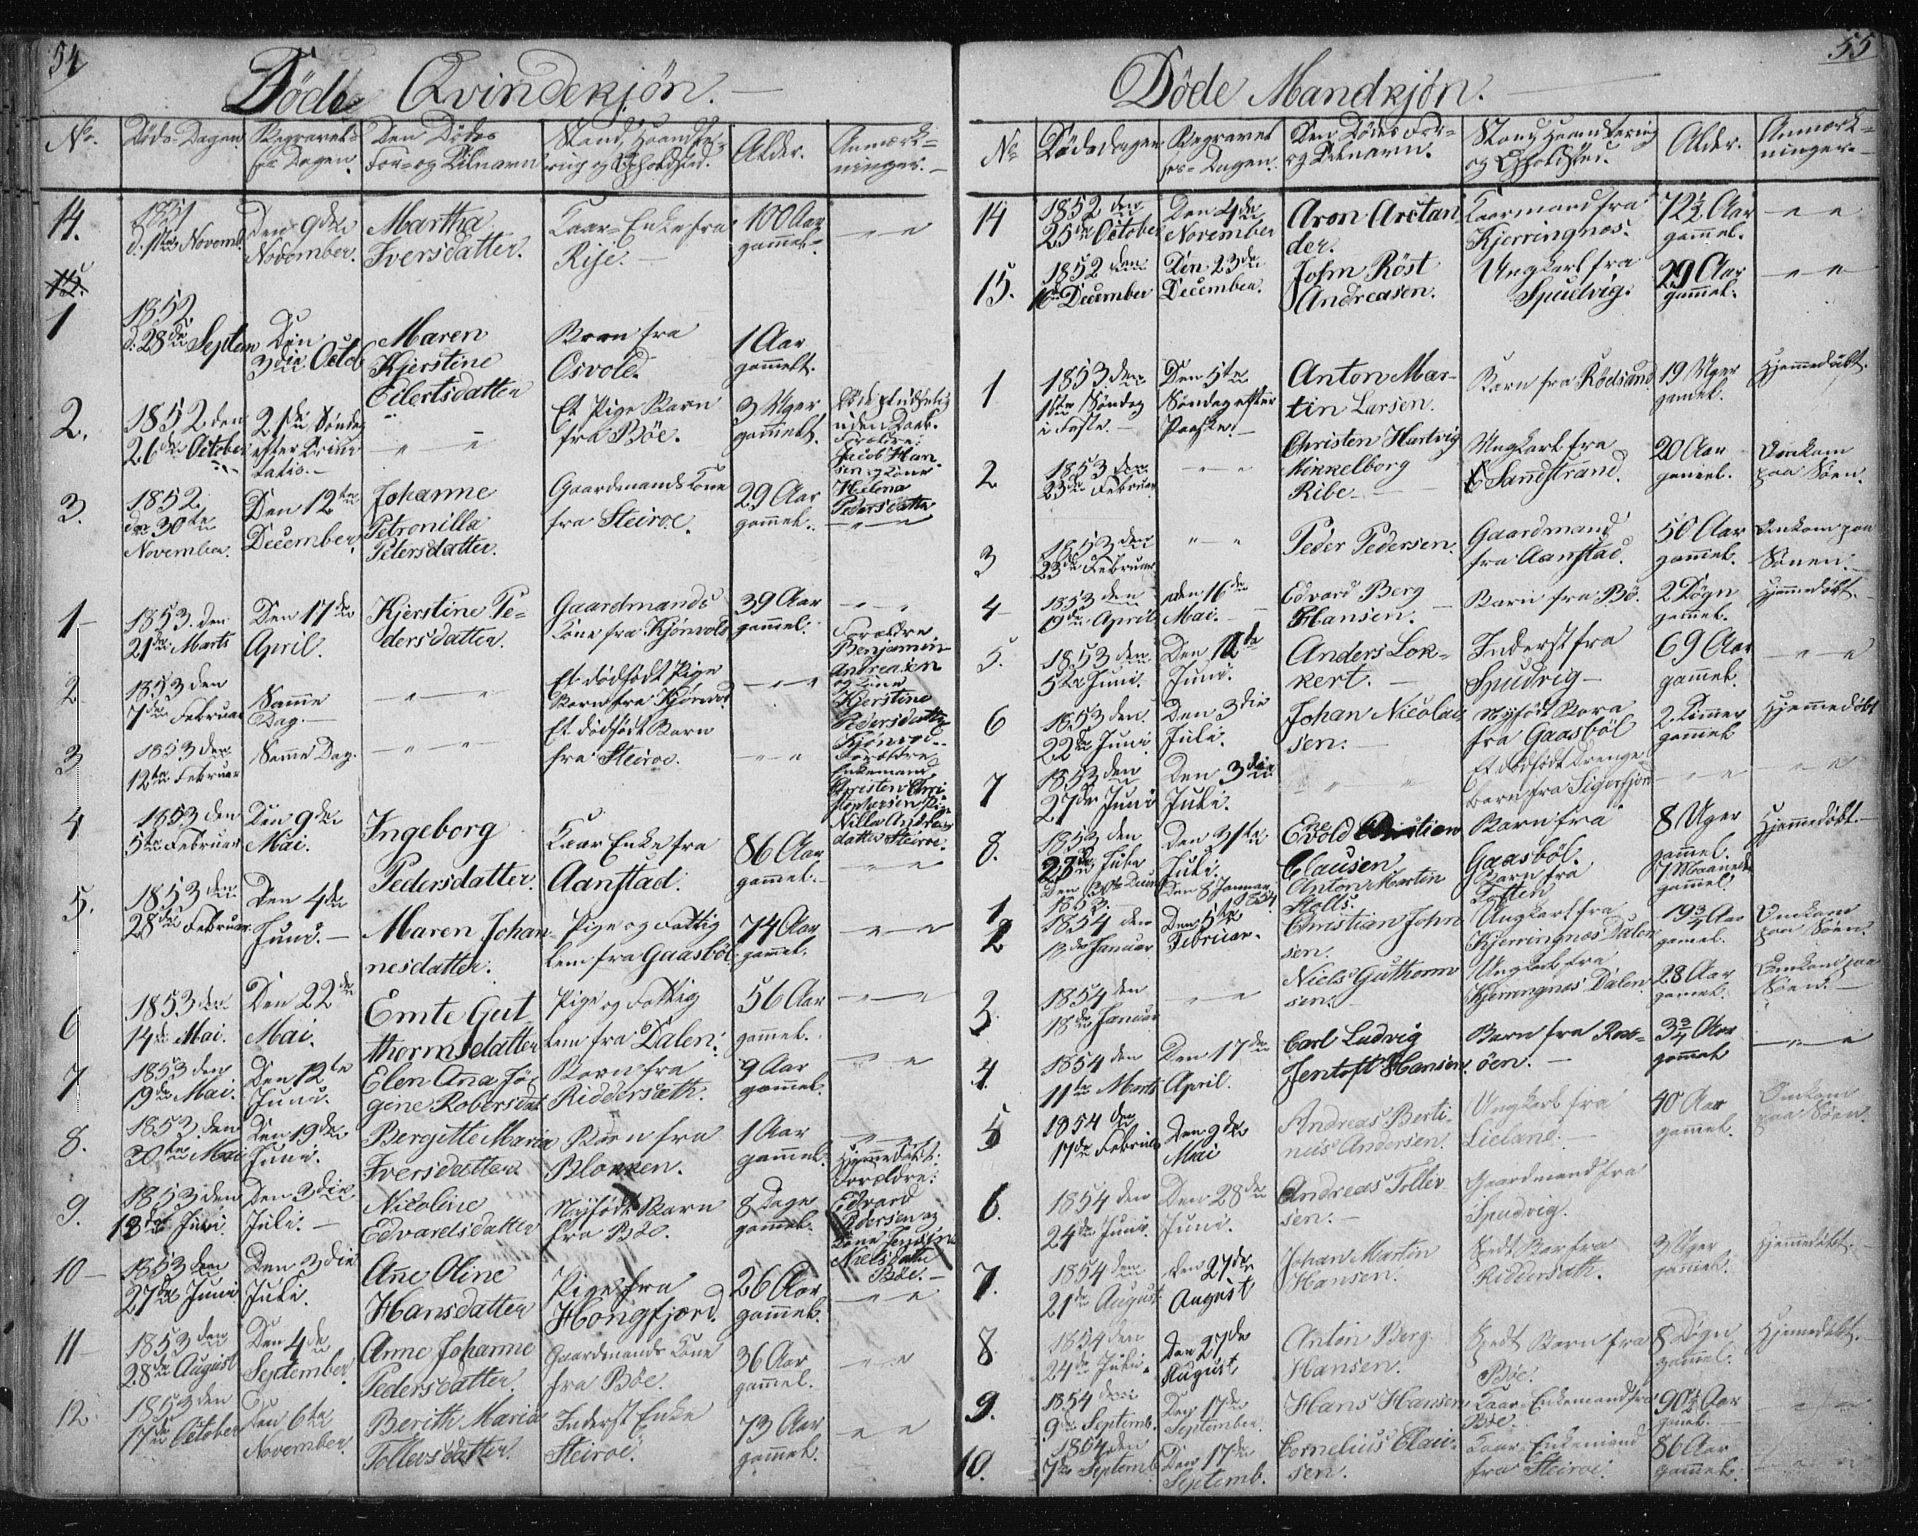 54
Döde Qvindekjön.
No.
Döds-Dagen
Begravelses Dagen.
Den Dödes For- og Tilnavn
Stand, Haandtering og Opholdsted.
Alder.
Anmærkninger.
14.
1851 d. 1ste Novemb.
Den 9de November.
Martha Iversdatter.
Kaar-Enke fra Rise.
100 Aar gammel.
15.
1
1852. d. 28de Septem
Den 3die Octob
Maren Kjerstine Eilertsdatter
Barn fra Osvold.
1 Aar gammelt.
2.
1852 den 26de October
21de Søndag efter Trinitatis.
Et Pige Barn fra Böe.
3 Uger gammelt.
uden Daab. Forældre: Jacob Hansen og Kone Helena Pedersdatter
3.
1852. den 30te November.
Den 12te December.
Johanne Petronilla Petersdatter.
Gaardmands Kone fra Steiroe.
29 Aar gammel.
1
1853. den 21de Marts
Den 17de April.
Kjerstine Pedersdatter.
Gaardmands Kone fra Kjörvold
39 Aar gammel.
2
1853 den 7de Februar
Samme Dag.
Et dödfödt Pige Barn fra Kjörvold
Forældre Benjamin Andreasen og Kone Kjerstine Pedersdatter
3
1853 den 12te Februar
Samme Dag.
Et dödfödt Barn fra Steiroe.
Forældre Enkemand Christen Christophersen
datter Steiroe.
4
1853 den 5te Februar
Den 9de Mai.
Ingeborg Pedersdatter.
Kaar Enke fra Aanstad.
86 Aar gammel.
5.
1853 den 28de Februar
Den 4de Juni.
Maren Johannesdatter.
Pige og Fattig Lem fra Gaasböl
74 Aar gammel.
6
1853 den 14de Mai.
Den 22de Mai.
Emte Guthormsdatter
Pige og Fattig Lem fra Dalen.
56 Aar gammel.
7
1853 den 19de Mai.
Den 12te Juni.
Elen Ana Jörgine Robersdat
Barn fra Riddersæth.
9 Aar gammel.
8.
1853. den 30te Mai
Den 19de Juni.
Bergitte Maria Iversdatter
Barn fra Blokken.
1 Aar gammel.
9.
1853 den 13de Juni.
Den 3die Juli.
Nicoline Edvardsdatter
Nyfödt Barn fra Böe.
8 Dage gammel.
Hjemmedöbt. Forældre: Edvard Pedersen og Kone
Nielsdatter Böe.
10
1853 den 27de Juni
Den 3die Juli.
Ane Oline Hansdatter
Pige fra Hongfjord.
26 Aar gammel.
11
1853 den 28de August
Den 4de September.
Anne Johanne Pedersdatter.
Gaardmands Kone fra Böe.
36 Aar gammel.
12.
1853 den 17de October
Den 6te November.
Berith Maria Tollersdatter.
Inderst Enke Steiroe.
73 Aar gammel.
55
Döde Mandkjön.
No
Dödsdagen
Begravelses-Dagen.
Den Dödes For- og Tilnavn.
Stand, Haandtering og Opholdsted.
Alder.
Anmærkninger.
14
1852 den 25de October
Den 4de November
Aron Arctander.
Kaarmand fra Kjerringnæs.
72½ Aar gammel.
15.
1852 den 16 December
Den 23de December.
John Röst Andreasen.
Ungkarl fra Spudvig.
29 Aar gammel.
1
1853 den 1ste Söndag i Faste.
Den 5te Söndag efter Paaske.
Anton Martin Larsen.
Barn fra Rödsand
19 Uger gammel.
Hjemmedöbt.
2
1853 den 23de Februar
Christen Hartvig Kinkelborg Ribe.
Ungkarl fra Sandstrand.
20 Aar gammel.
Omkom paa Söen.
3
1853 den 23de Februar
Peder Pedersen.
Gaardmand fra Aanstad.
50 Aar gammel.
Omkom paa Söen.
4
1853 den 19de April
den 16de Mai.
Edvard Berg Hansen.
Barn fra Bö.
2 Dögn gammel.
Hjemmedöbt.
5.
1853 den 5te Juni.
Den 12te Juni.
Anders Lokkert.
Inderst fra Spudvig
69 Aar gammel.
6
1853 den 22de Juni.
Den 3die Juli.
Johan Nicolaisen.
Nyfödt Barn fra Gaasböl
2 Timer gammel
Hjemmedöbt
7
1853 den 27de Juni
Den 3die Juli.
Et dödfödt Drenge Barn fra Sigerfjord
8.
1853 den
Juli.
Evold Christian Clausen
Barn fra Gaasböl.
8 Uger gammel.
Hjemmedöbt.
1
Den 30te Decem 1853.
Den 8 Januar 1854
Anton Martin Holls.
Barn fra
7 Maaneder gammel
2
1854 den 13de Januar
Den 5te Februar.
Christian Johnsen.
Ungkarl fra Kjerringnæs Dalen
19¾ Aar gammel.
Omkom paa Söen.
3
1854 den 18de Januar
Niels Guthormsen.
Ungkarl fra Kjerringnæs Dalen
28 Aar gammel.
Omkom paa Söen.
4
1854 den 11te Marts
Den 17de April.
Carl Ludvig Jentoft Hansen
Barn fra
öen.
3¾ Aar gammel
5
1854 den 17de Februar
Den 9de Mai
Andreas Bertinus Andersen.
Ungkarl fra Lieland.
40 Aar gammel.
Omkom paa Söen
6.
1854 den 24de Juni.
Den 28de Juni.
Andreas Tollersen.
Gaardmand fra Spudvig.
7.
1854 den 21de August
Den 27de August
Johan Martin Hansen.
Födt Barn fra Riddersæth.
3 Uger gammel.
Hjemmedöbt.
8
1854 den 24de Juli.
Den 27de August
Anton Berg Hansen.
Födt Barn fra Böe.
8 Dögn gammel.
Hjemmedöbt.
9.
1854 den 9de Septemb.
Den 17de September.
Hans Hansen
Kaar-Enkemand fra Böe.
90½ Aar gammel.
10.
1854 den 7de Septemb
Den 17de Septemb.
Cornelius Clausen.
Kaar-Enkemand fra Steiroe.
86 Aar gammel.